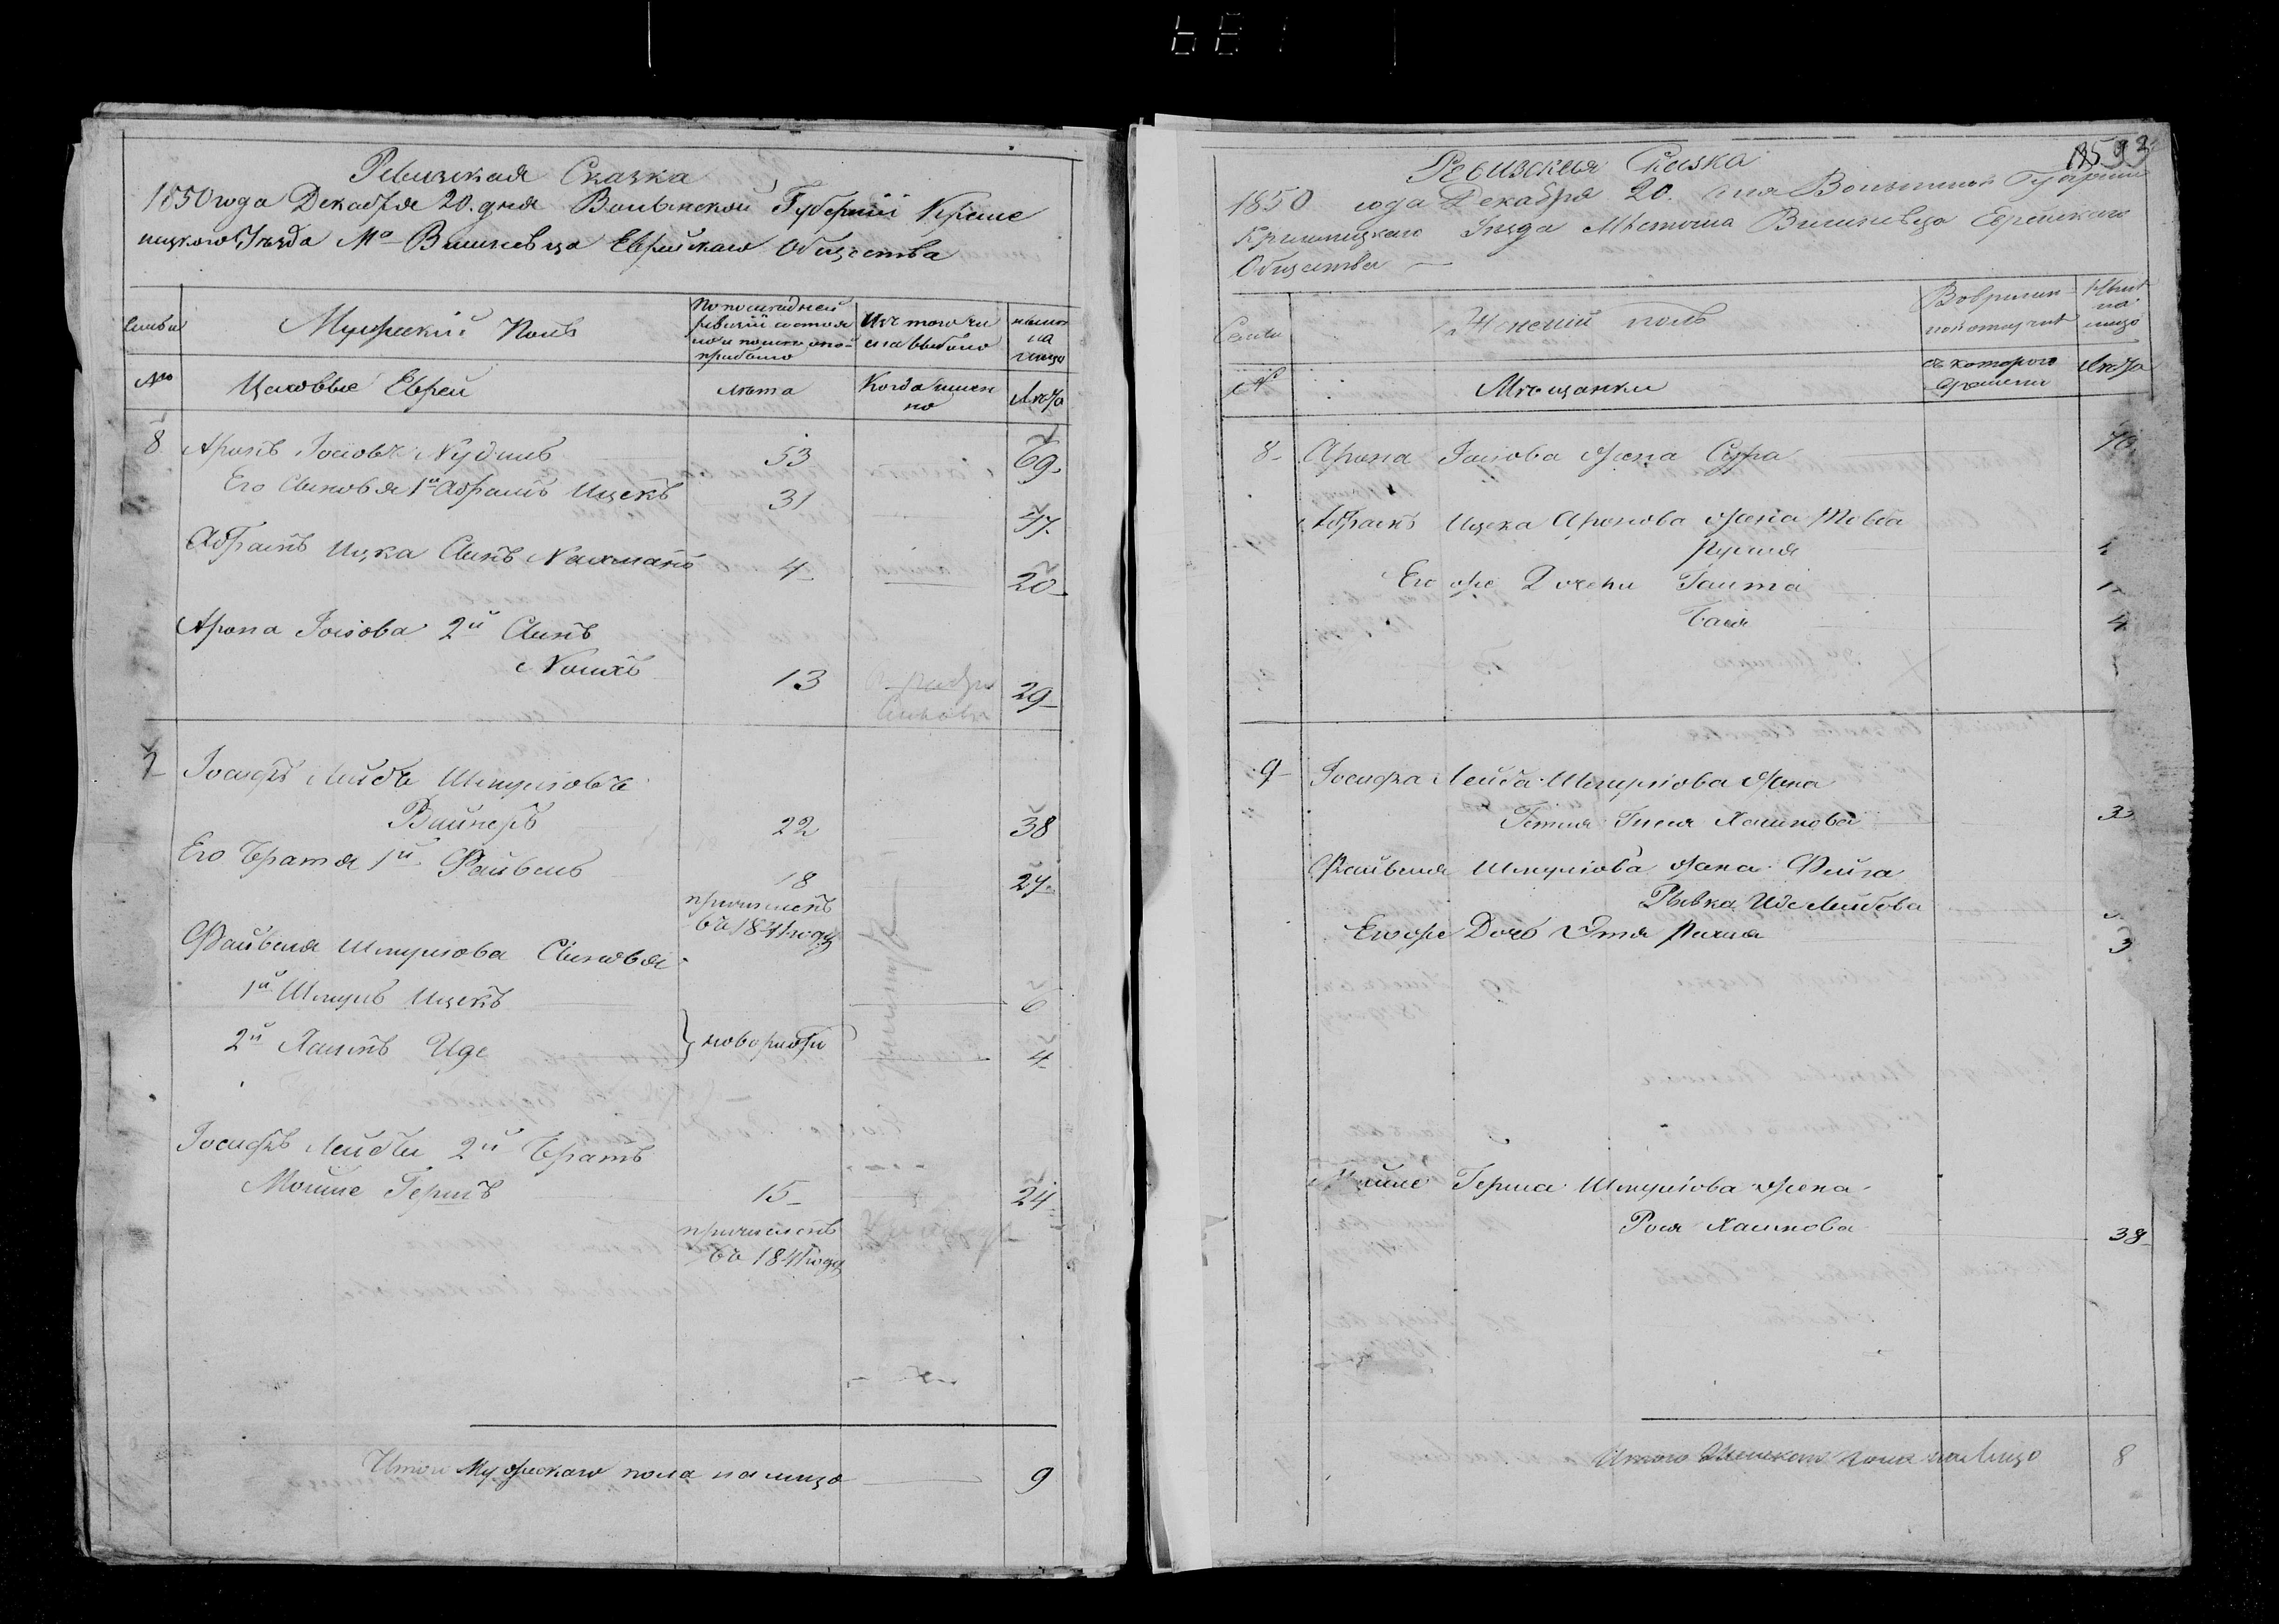 Ревизская Сказка
1850 года Декабря 20. дня Волынской Губернии Креме
ницкого Уезда Мᵃ Вишневца Еврейскаго Общества
Семьи
Мужеский Полъ
По последней ревизии состояло и после оно прибыло
Изъ того числа выбыло
ныне на лицо
№
Цеховые Евреи
Лета
Когда именно
Лета
8 Аронъ Іосіовъ 53 69
Его Сыновья 1й Абрамъ Ицекъ 31 47
Абрамъ Ицка Сынъ Нахманъ 4 20
Арона Іосіова 2й Сынъ
13 29
Іосифъ Лейбъ Шмуліовъ
Вайнеръ 22 38
Его Братья 1й Файвель 18 27
причисленъ
въ 1841 году
Файвеля Шмуліова Сыновья
1й Шмуль Ицекъ 6
2й Хаимъ Иде новорож 4
Іосифъ Лейбы 2й Братъ
Мошше Гершъ 15 24
причисленъ
въ 1841 году
Итого Мужескаго пола на лицо 9
Ревизская Сказка
1850 года Декабря 20. дня Волынской Губернии
Кременицкаго Уезда Местечка Вишневца Еврейскаго
Общества
Семьи
Женский полъ
Во временной отлучке
Ныне на лицо
№
Мещанки
съ котораго времени
Лета
8 Арона Іосіова жена Сура 70
Абрамъ Ицека Аронова жена Товба
Рухля
Его же Дочери
Бася 4
9 Іосифа Лейба Шмуліова жена
Хаимова
Файвеля Шмуліова жена Фейга
Ривка Иде Лейбова
Его же Дочь Этя Рихля 3
Герша Шмуліова жена
Рося Хаимова 38
Итого Женскаго пола на Лицо 8